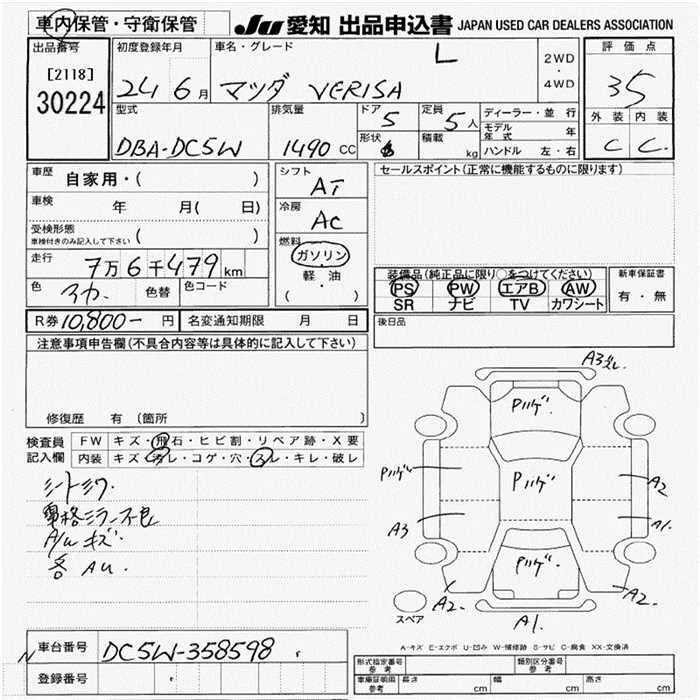 車内保管・守衛保管 JU 愛知 出品申込書 JAPAN USED CAR DEALERS ASSOCIATION
出品番号 初度登録年月 車名・グレード L 2WD・4WD 評価点
[2118]
30224 24 6月 マツダ VERISA 35
型式 排気量 ドア 5 定員 5人 ディーラー・並行 外装 内装
DBA-DC5W 1490 CC 形状 積載 kg モデル年式 年 C C
ハンドル 左・右
車歴 自家用・( ) シフト AT セールスポイント(正常に機能するものに限ります)
車検 年 月( 日) 冷房 AC
受検形態 ( )
車検付きのみ記入して下さい
燃料 ガソリン
軽・油
( )
走行 7万6千479km
装備品(純正品に限り○をつけてください) 新車保証書
PS PW エアB AW 有・無
SR ナビ TV カワシート
色 色替 色コード
R券 10,800- 円 名変通知期限 月 日 後日品
注意事項申告欄(不具合内容等は具体的に記入して下さい)
修復歴 有 (箇所 )
検査員記入欄 FW キズ・飛石・ヒビ割・リペア跡・X要
内装 キズ・汚レ・コゲ・穴・スレ・キレ・破レ
A/w キズ.
各 AU.
A3
Pハゲ.
Pハゲ A2
Pハゲ
A3 A1.
Pハゲ.
A2. A2.
スペア A1.
A-キズ E-エクボ U-凹み W-補修跡 S-サビ C-腐食 XX-交換済
車台番号 DC5W-358598
登録番号
型式指定番号 参考 類別区分番号 参考
車庫証明用 参考 長さ cm 幅 cm 高さ cm